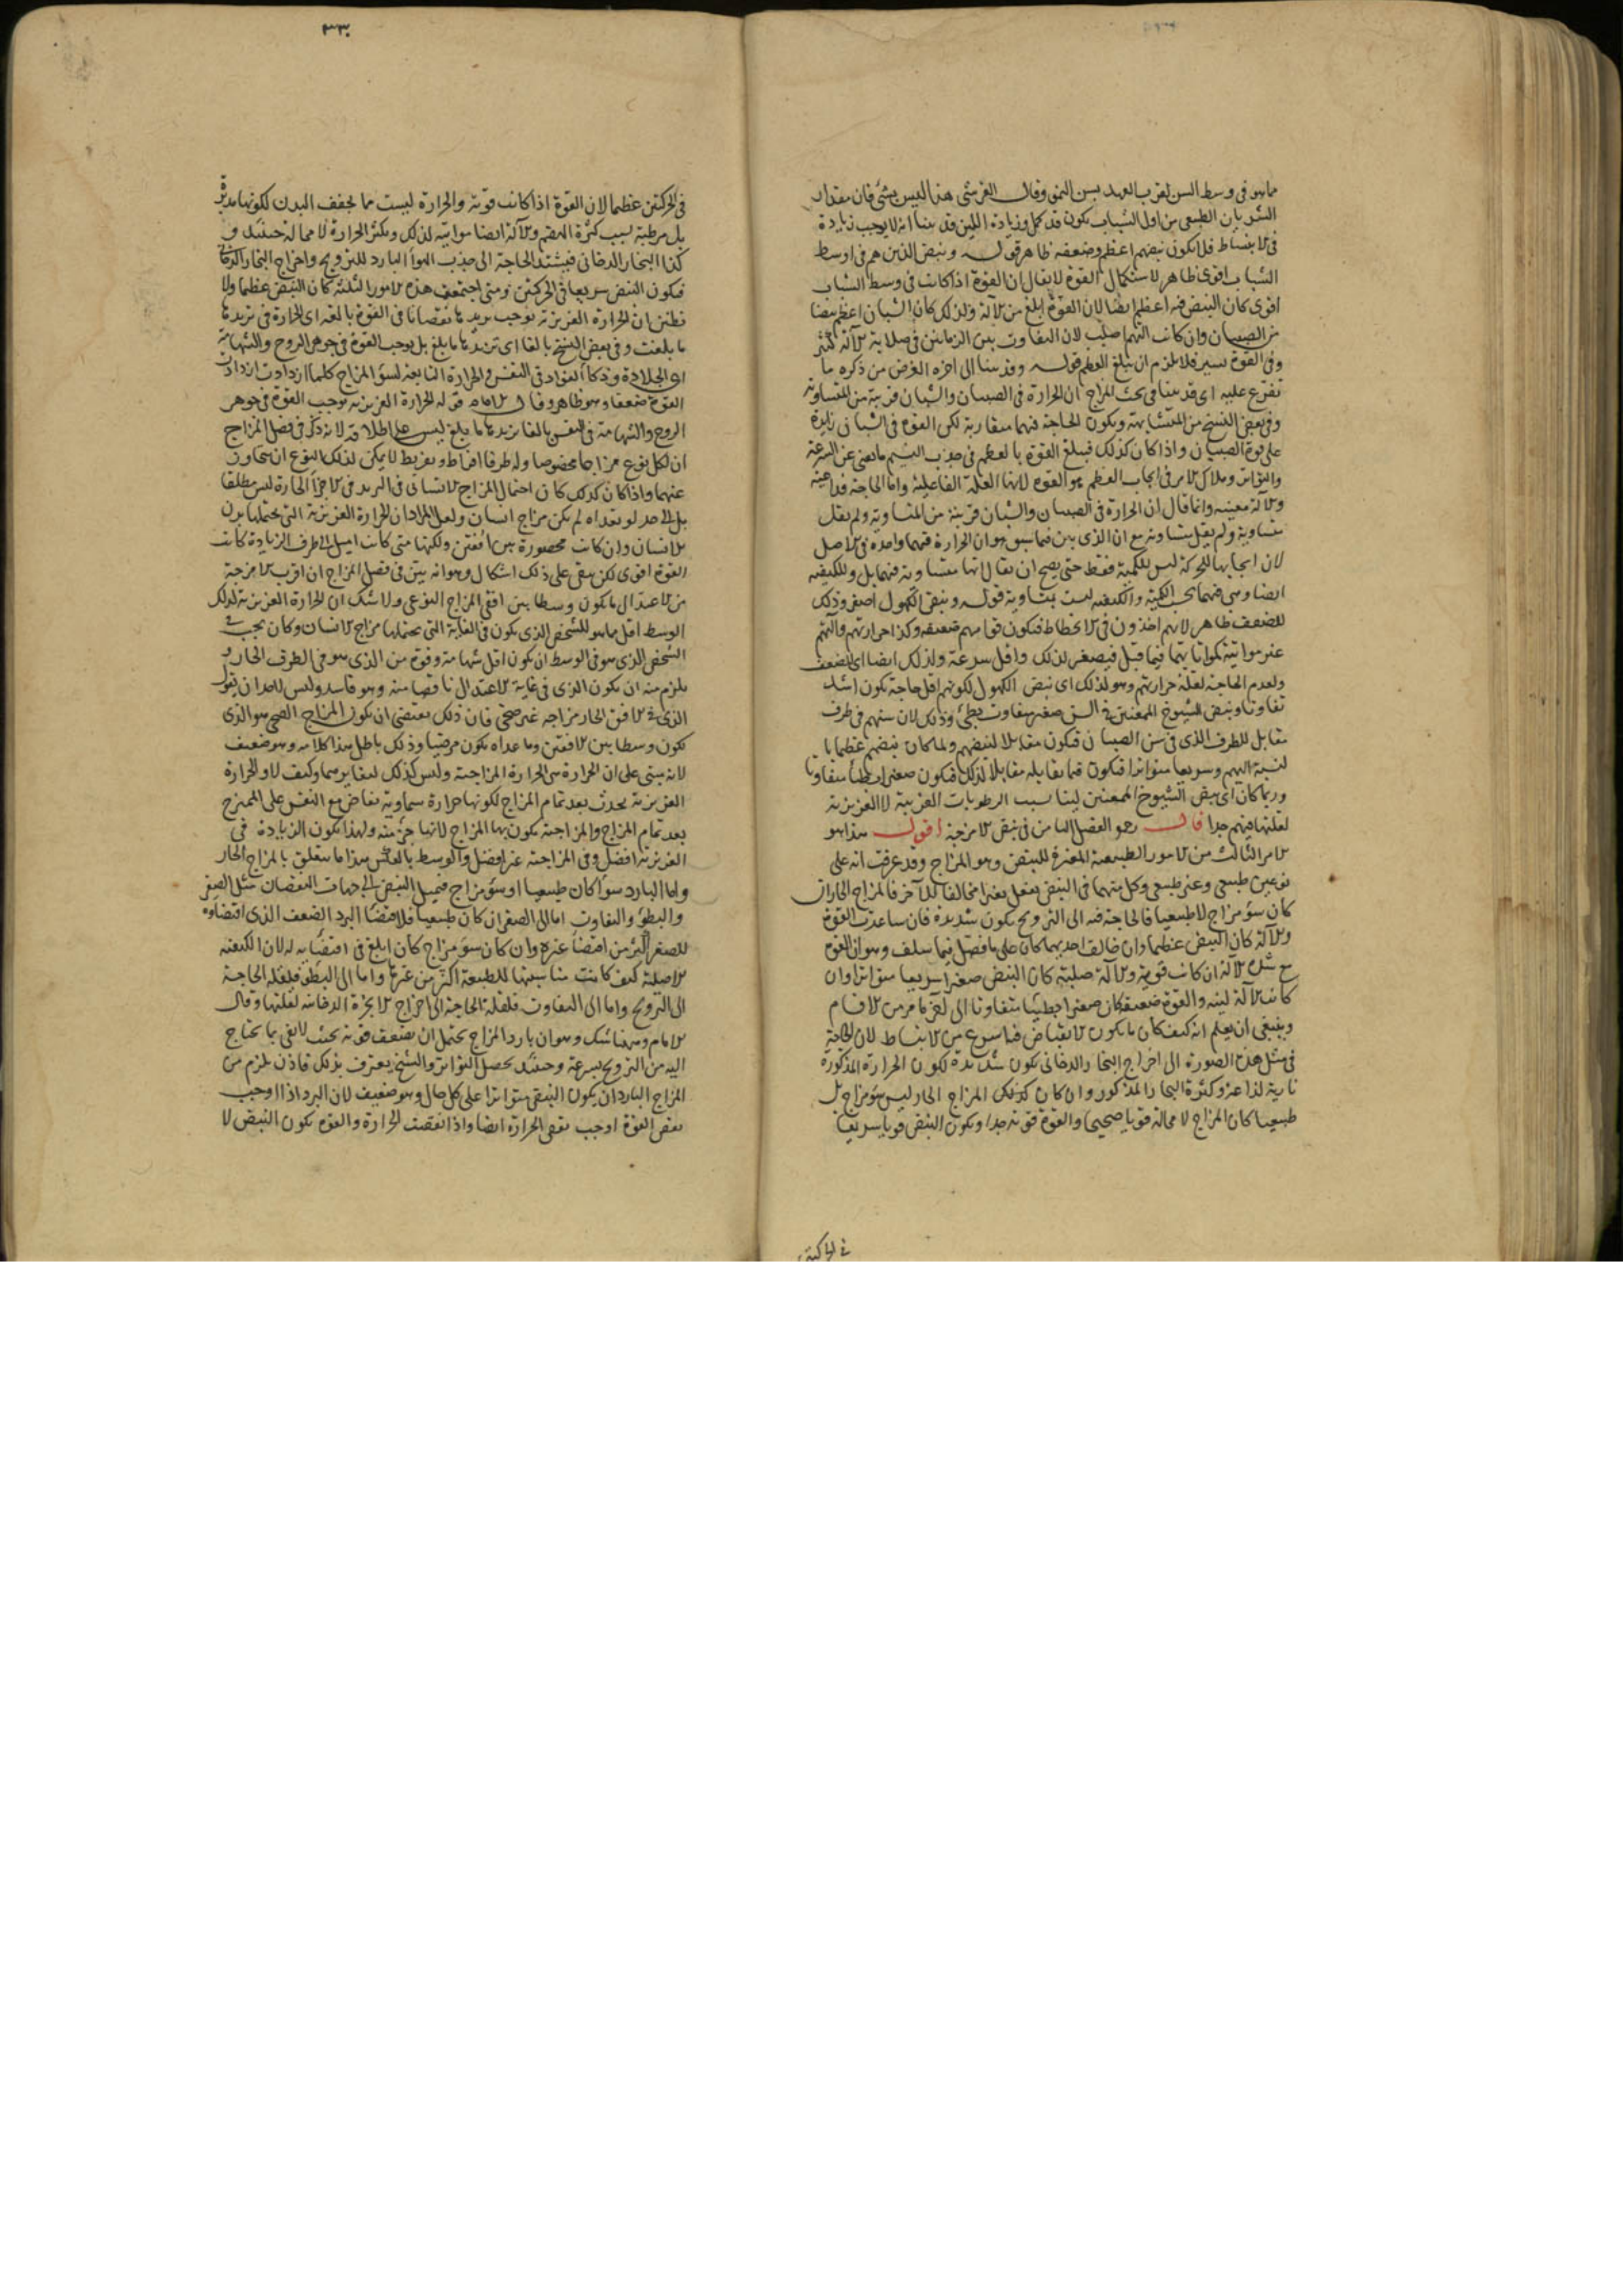 مما هو فى وسط السن لقرب العهد بسن النمو وقال القرشى هذا ليس بشئ فان مقدار
الشريان الطبيعى من اول الشباب يكون قد كمل وزيادة اللين قد بينا انه لا يوجب زيادة
فى الانبساط فلا يكون نبضهم اعظم وضعفه ظاهر قوله ونبض الذين هم فى اوسط
الشباب اقوى ظاهر لاستكمال القوة لا يقال ان القوة اذا كانت فى وسط الشباب
اقوى كان النبض فيه اعظم ايضا لان القوة ابلغ من الآلة ولذلك كان الشبان اعظم نبضا
من الصبيان وان كانت آلتهم اصلب لان التفاوت بين الزمانين فى صلابة الآلة كثير
وفى القوة يسير فلا يلزم ان يبلغ العظم قوله وقد بينا الى اخره الغرض من ذكره ما
تفرع عليه اى قد بينا فى بحث المزاج ان الحرارة فى الصبيان والشبان قريبة من المتساوية
وفى بعض النسخ من المتشابهة ويكون الحاجة فيهما متقاربة لكن القوة فى الشبان زايدة
على قوة الصبيان واذا كان كذلك فيبلغ القوة بالعظم فى جذب النسيم ما يغنى عن السرعة
والتواتر وملاك الامر فى ايجاب العظم هو القوة لانها العلة الفاعلية واما الحاجة فداعية
والآلة معينة وانما قال ان الحرارة فى الصبيان والشبان قريبة من المتساوية ولم يقل
متساوية ولم يقل متساوية مع ان الذى بين فيما سبق هو ان الحرارة فيهما واحدة فى الاصل
لان ايجابها للحركة ليس للكمية فقط حتى يصح ان يقال انها متساوية فيهما بل وللكيفية
ايضا وهى فيهما بحسب الكمية والكيفية ليست بمتساوية قوله ونبض الكهول اصغر وذلك
للضعف ظاهر لانهم اخذون فى الانحطاط فيكون قواهم ضعيفة وكذا حرارتهم وآلتهم
غير مواتية كمواتاتها فيما قبل فيصغر لذلك واقل سرعة ولذلك ايضا اى للضعف
ولعدم الحاجة لقلة حرارتهم وهو لذلك اى نبض الكهول لكونهم اقل حاجة يكون اشد
تفاوتا ونبض الشيوخ الممعنين فى السن صغير متفاوت بطئ وذلك لان سنهم فى طرف
مقابل للطرف الذى فى سن الصبيان فيكون مقابلا لنبضهم ولما كان نبضهم عظيما با
لنسبة اليهم وسريعا متواترا فيكون فيما يقابله مقابلا لذلك فيكون صغيرا بطيئا متفاوتا
وربما كان اى نبض الشيوخ الممعنين لينا بسبب الرطوبات الغريبة لا الغريزية
لقلتها فيهم جدا قال رحه الفصل الثامن فى نبض الامزجة اقول هذا هو
الامر الثالث من الامور الطبيعية المغيرة للنبض وهو المزاج وقد عرفت انه على
نوعين طبيعى وغير طبيعى وكل منهما فى النبض يفعل تغيرا مخالفا للآخر فالمزاج الحار ان
كان سوء مزاج لا طبيعيا فالحاجة فيه الى الترويح يكون شديدة فان ساعدت القوة
والآلة كان النبض عظيما وان خالف احديهما كان على ما فصل فيما سلف وهو ان القوة
مع الآلة ان كانت قوية والآلة صلبة كان النبض صغيرا سريعا متواترا وان
كانت الآلة لينة والقوة ضعيفة كان صغيرا بطيئا متفاوتا الى آخر ما مر من الاقسام
وينبغى ان يعلم انه كيف كان ما يكون الانقباض فيه اسرع من الانبساط لان الحاجة
فى مثل هذه الصورة الى اخراج البخار الدخانى يكون شديدة لكون الحرارة المذكورة
نارية لذاعة وكثرة البخار المذكور وان كان كذلك المزاج الحار ليس سوء مزاج بل
طبيعيا كان المزاج لا محالة قويا صحيحا والقوة قوية جدا ويكون النبض قويا سريعا
فى الحركتين
٣٣٠
فى الحركتين عظيما لان القوة اذا كانت قوية والحرارة ليست مما يجفف البدن لكونها مدبرة
بل مرطبة بسبب كثرة الهضم والآلة ايضا مواتية لذلك ويكثر الحرارة لا محالة حينئذ و
كذا البخار الدخانى فيشتد الحاجة الى جذب الهواء البارد للترويح واخراج البخار الدخانى
فيكون النبض سريعا فى الحركتين ومتى اجتمعت هذه الامور الثلثة كان النبض عظيما ولا
تظنن ان الحرارة الغريزية يوجب تزيدها نقصانا فى القوة بالغة اى الحرارة فى تزيدها
ما بلغت وفى بعض النسخ بالغا اى تزيدها ما بلغ بل يوجب القوة فى جوهر الروح والشهامة
اى الجلادة وذكاء الفؤاد فى النفس والحرارة التابعة لسوء المزاج كلما ازدادت ازدادت
القوة ضعفا وهو ظاهر وقال الامام قوله الحرارة الغريزية توجب القوة فى جوهر
الروح والشهامة فى النفس بالغا تزيدها ما بلغ ليس على اطلاقه لانه ذكر فى فصل المزاج
ان لكل نوع مزاجا مخصوصا وله طرفا افراط وتفريط لا يمكن لذلك النوع ان يتجاوز
عنهما واذا كان كذلك كان احتمال المزاج الانسانى فى التزيد فى الاجزاء الحارة ليس مطلقا
بل الى حد لو تعداه لم يكن مزاج انسان ولعل المراد ان الحرارة الغريزية التى يحتملها بدن
الانسان وان كانت محصورة بين افقين ولكنها متى كانت اميل الى طرف الزيادة كانت
القوة اقوى لكن يبقى على ذلك اشكال وهو انه بين فى فصل المزاج ان اقرب الامزجة
من الاعتدال ما يكون وسطا بين افقى المزاج النوعى ولا شك ان الحرارة الغريزية لذلك
الوسط اقل مما هو للشخص الذى يكون فى الغاية التى يحتملها مزاج الانسان وكان يجب فى
الشخص الذى هو فى الوسط ان يكون اقل شهامة وقوة من الذى هو فى الطرف الحار و
يلزم منه ان يكون الذى فى غاية الاعتدال ناقصا منه وهو فاسد وليس لاحد ان يقول
الذى فى الافق الحار مزاجه غير صحى فان ذلك يقتضى ان يكون المزاج الصحى هو الذى
يكون وسطا بين الافقين وما عداه يكون مرضيا وذلك باطل هذا كلامه وهو ضعيف
لانه بنى على ان الحرارة هى الحرارة المزاجية وليس كذلك لتغايرهما وكيف لا والحرارة
الغريزية يحدث بعد تمام المزاج لكونها حرارة سماوية تفاض مع النفس على الممتزج
بعد تمام المزاج والمزاجية يكون بها المزاج لانها جزء منه ولهذا يكون الزيادة فى
الغريزية افضل وفى المزاجية غير افضل والوسط بالعكس هذا ما يتعلق بالمزاج الحار
واما البارد سواء كان طبيعيا او سوء مزاج فيميل النبض الى جهات النقصان مثل الصغر
والبطؤ والتفاوت اما الى الصغر ان كان طبيعيا فلاقتضاء البرد الضعف الذى اقتضاؤه
للصغر اكثر من اقتضاء غيره وان كان سوء مزاج كان ابلغ فى اقتضايه له لان الكيفية
الاصلية كيف كانت مناسبتها للطبيعة اكثر من غيرها واما الى البطؤ فلقلة الحاجة
الى الترويح واما الى التفاوت فلقلة الحاجة الى اخراج الابخرة الدخانية لقلتها وقال
الامام وههنا شك وهو ان بارد المزاج يحتمل ان يضعف قوته بحيث لا يفى بما يحتاج
اليه من الترويح بسرعة وحينئذ يحصل التواتر والشيخ يعترف بذلك فاذن يلزم من
المزاج البارد ان يكون النبض متواترا على كل حال وهو ضعيف لان البرد اذا اوجب
نقص القوة اوجب نقص الحرارة ايضا واذا نقصت الحرارة والقوة يكون النبض لا